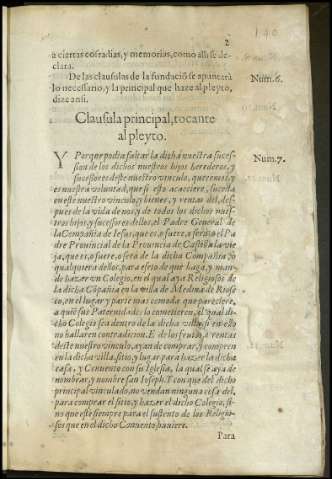 2
140
a ciertas cofradias, y memorias, como alli se de-
clara.
De las clausulas de la fundaciõ se apuntarà
lo necessario, y la principal que haze al pleyto,
dize ansi.
Num.6.
Clausula principal, tocante
al pleyto.
Y Porque podia faltar la dicha nuestra suces-
sion de los dichos nuestros hijos herederos, y
sucessores deste nuestro vinculo, queremos, y
es nuestra voluntad, que si esto acaeciere, suceda
en este nuestro vinculo, y bienes, y rentas del, des-
pues de la vida de nos, y de todos los dichos nues-
tros hijos, y sucessores dellos, el Padre General de
la Compañia de Iesus, que es, o fuere, a serito el Pa
dre Provincial de la Provincia de Castilla la vie
ja, que es, o fuere, o sera de la dicha Compañia, ò
qualquiera dellos, para efeto de que haga, y man-
de hazer un Colegio, en el qual aya Religiosos de
la dicha Cõpañia en la villa de Medina de Riose
co, en el lugar y parte mas comoda que pareciere,
a quiẽ sus Paternidades lo cometieren, el qual di-
cho Colegio sea dentro de la dicha villa, si en ello
no hallaren contradicion. E de los frutos, e rentas
deste nuestro vinculo, ayan de comprar, y compren
en la dicha villa, sitio, y lugar para hazer la dicha
casa, y Convento con su Iglesia, la qual se aya de
nombrar, y nombre san Ioseph. Y con que del dicho
principal vinculado, no vendan ninguna cosa del,
para comprar el sitio, y hazer el dicho Colegio, si-
no que este siempre para el sustento de los Religio-
sos que en el dicho Convento huviere.
Num.7.
Para